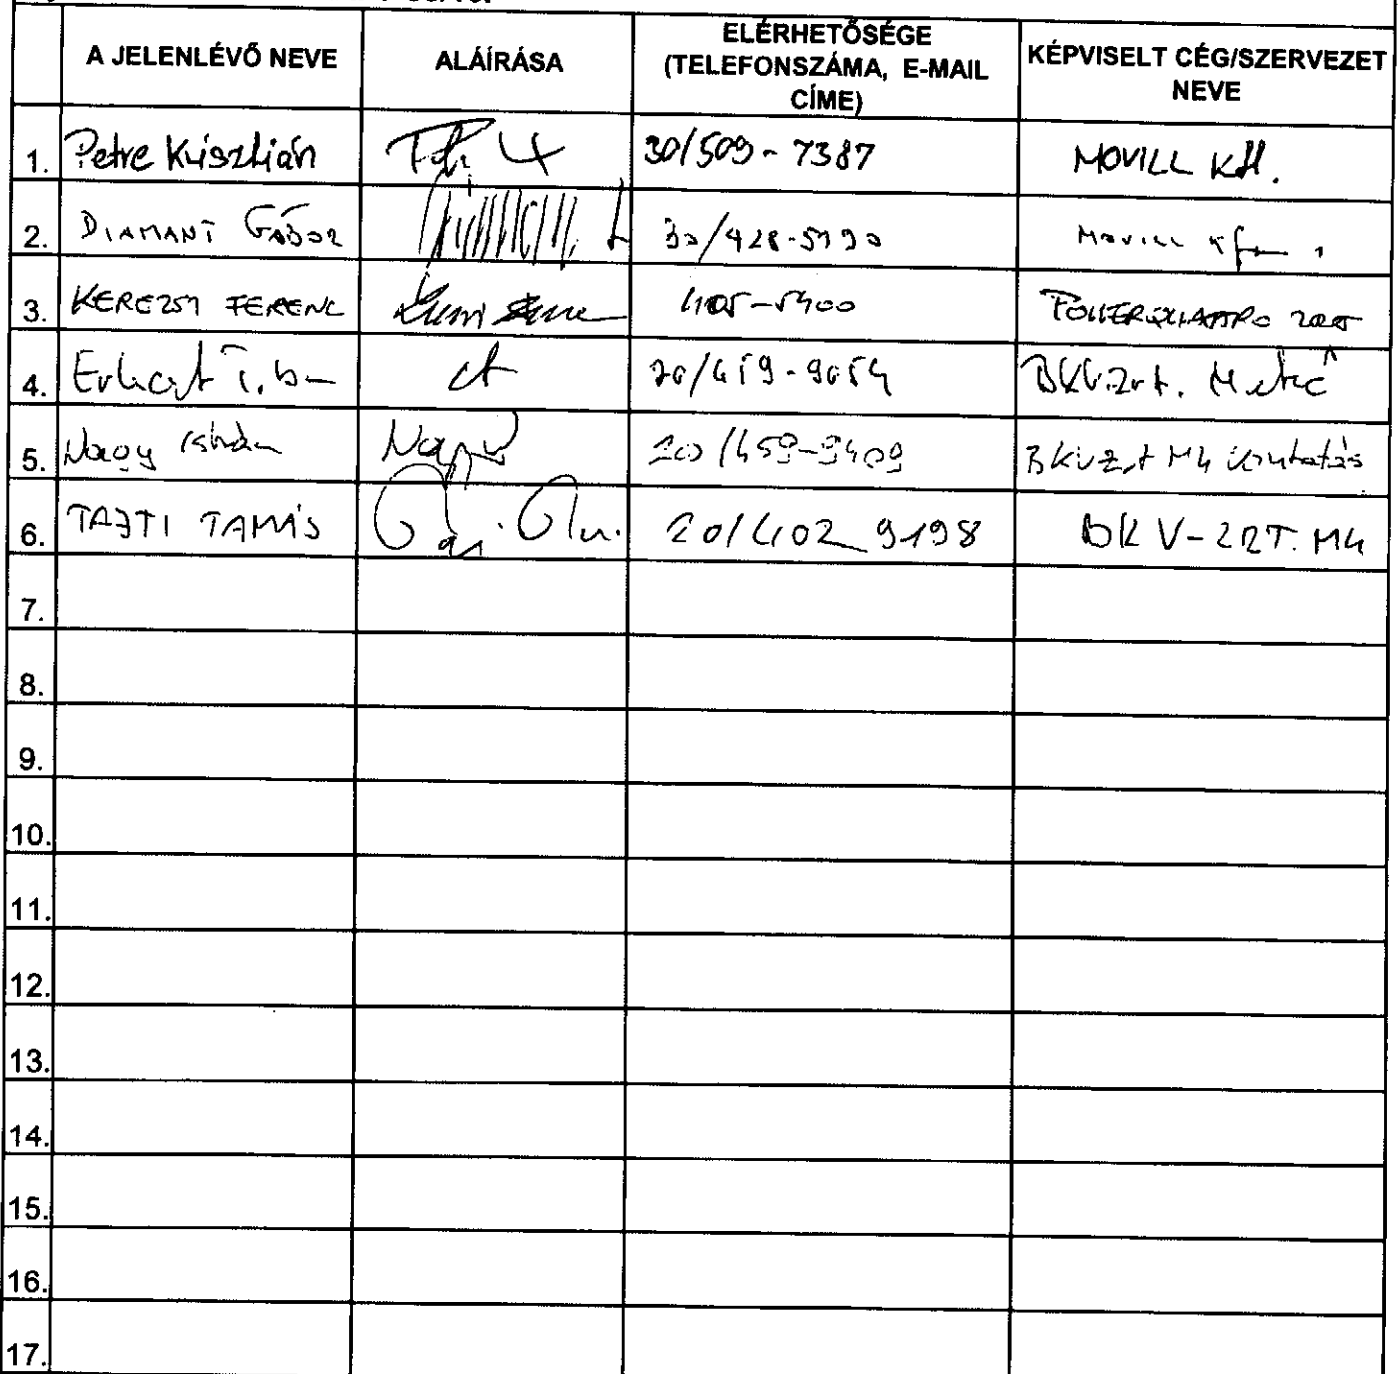 A JELENLÉVŐ NEVE
ALÁÍRÁSA
ELÉRHETŐSÉGE
(TELEFONSZÁMA, E-MAIL
CÍME)
KÉPVISELT CÉG/SZERVEZET
NEVE
1. Petre Krisztián 30/509-7387 MOVILL Kft.
2. DIAMANT GÁBOR 30/428-5190 MOVILL
3. KEREZSI FERENC 405-5400 POWERQUATTRO
4. BKV.Zrt. Metró
5. Nagy István Nagy 20/459-9409 BKV Zrt M4
6. TAJTI TAMÁS 20/402 9198 BKV-ZRT. M4
7.
8.
9.
10.
11.
12.
13.
14.
15.
16.
17.